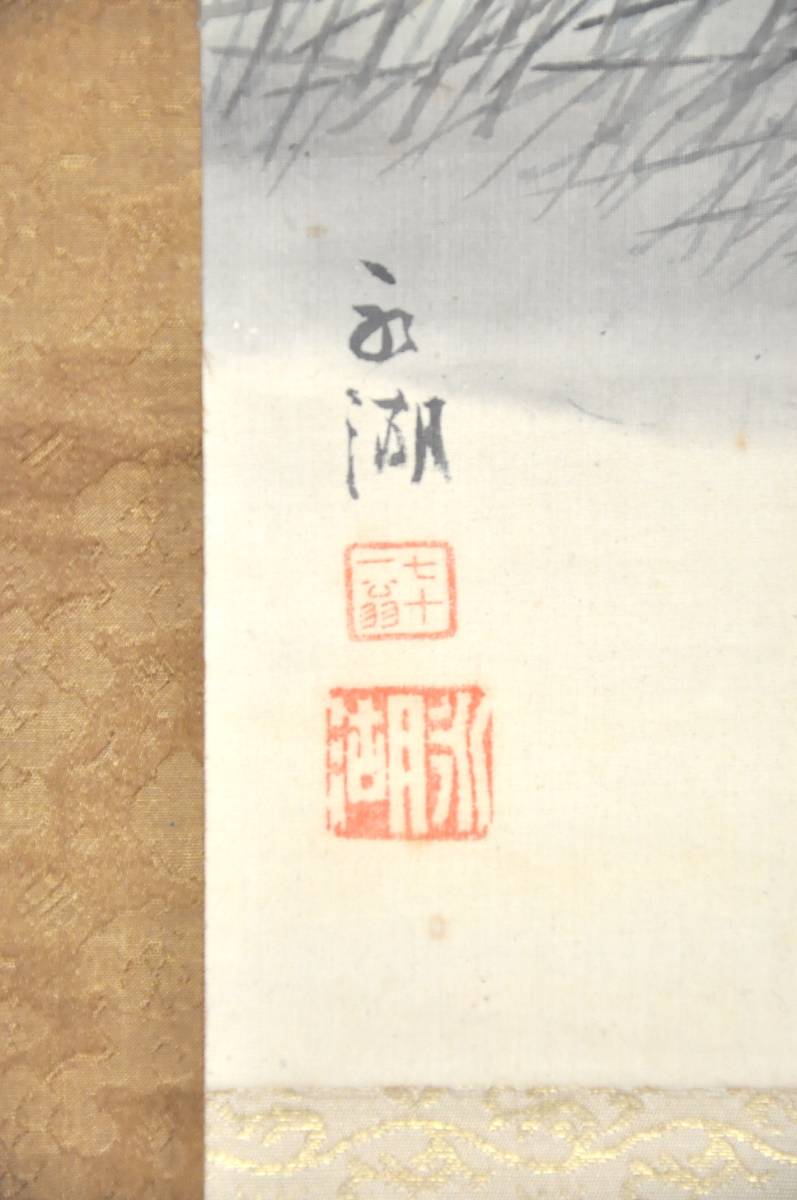 永湖
七十
一翁
永湖